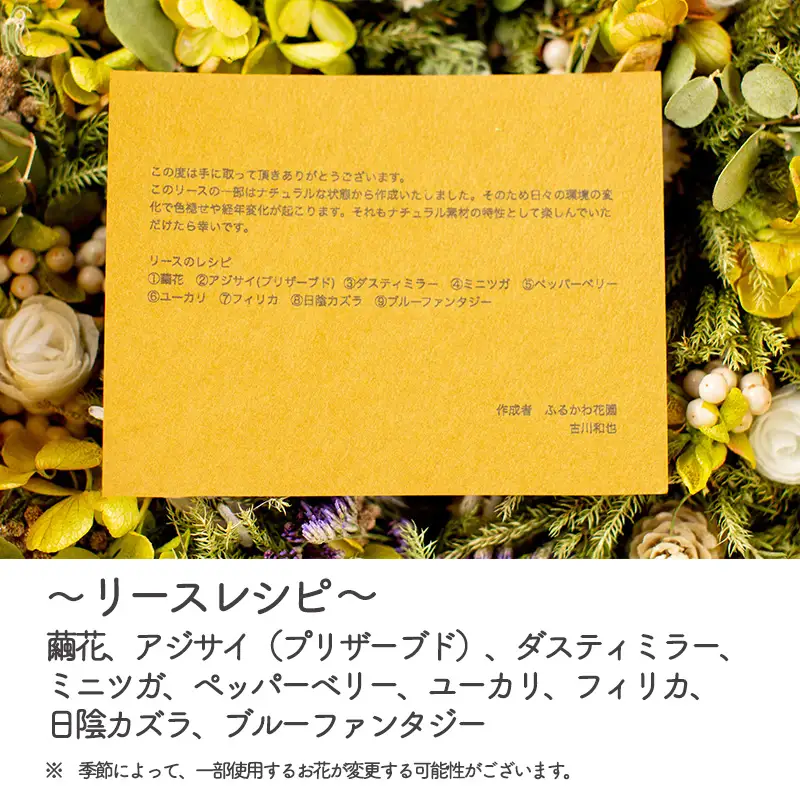 この度は手に取って頂きありがとうございます。
このリースの一部はナチュラルな状態から作成いたしました。そのため日々の環境の変
化で色褪せや経年変化が起こります。それもナチュラル素材の特性として楽しんでいた
だけたら幸いです。
リースのレシピ
①繭花 ②アジサイ(プリザーブド) ③ダスティミラー ④ミニツガ ⑤ペッパーベリー
⑥ユーカリ ⑦フィリカ ⑧日陰カズラ ⑨ブルーファンタジー
作成者 ふるかわ花園
古川和也
〜リースレシピ〜
繭花、アジサイ（プリザーブド）、ダスティミラー、
ミニツガ、ペッパーベリー、ユーカリ、フィリカ、
日陰カズラ、ブルーファンタジー
※ 季節によって、一部使用するお花が変更する可能性がございます。